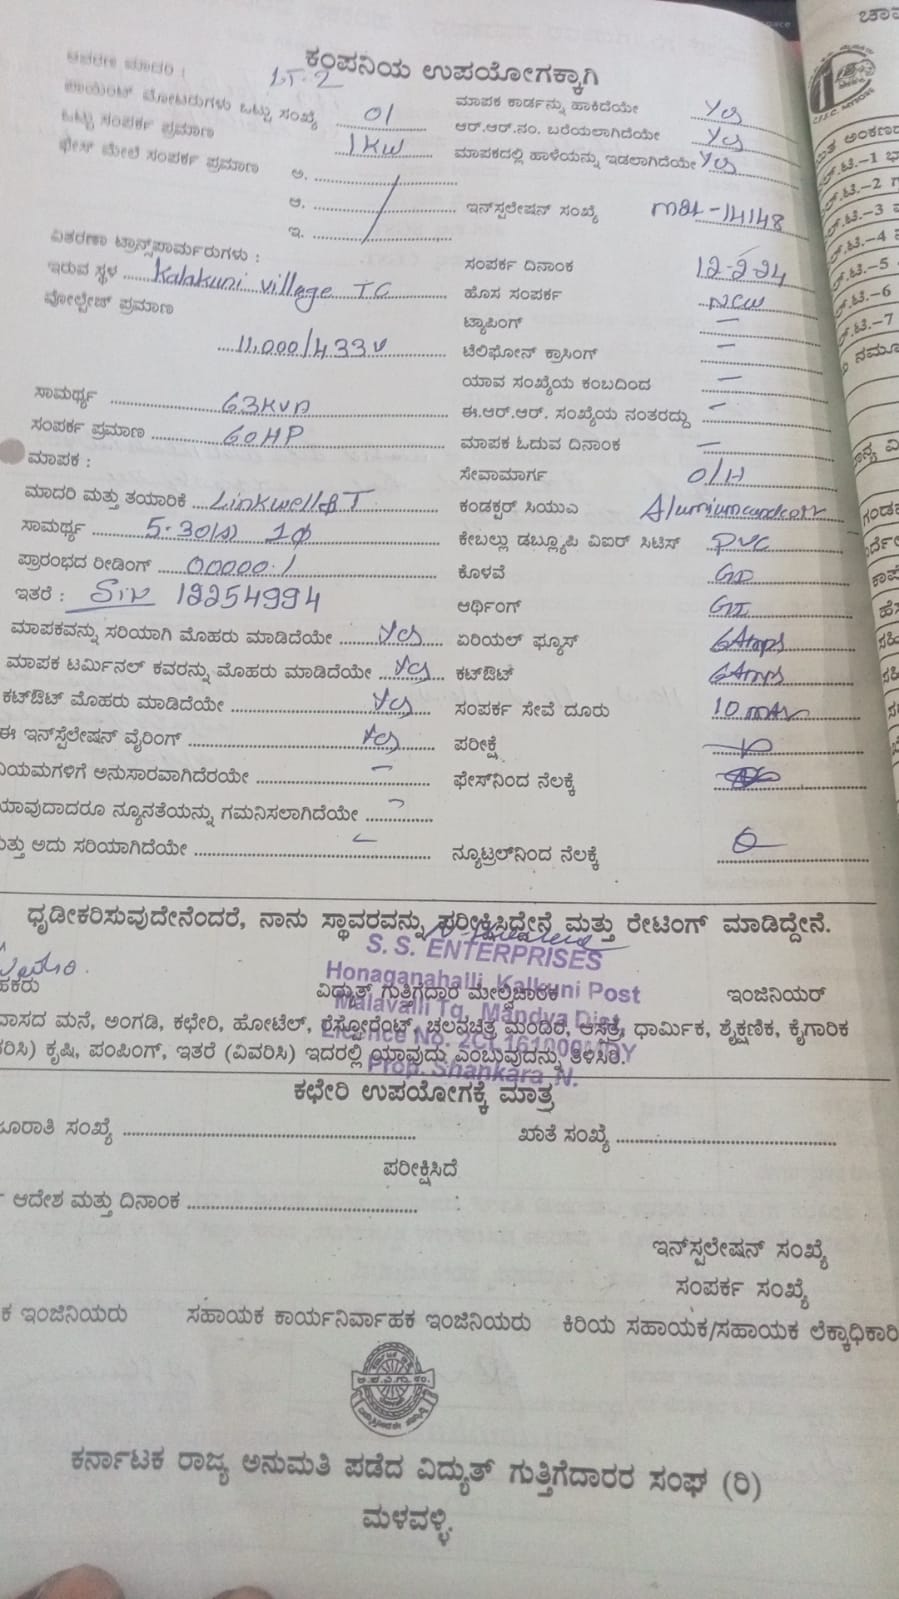 ಕಂಪನಿಯ ಉಪಯೋಗಕ್ಕಾಗಿ
LT-2
ಪಾಯಿಂಟ್ ಮೋಟರುಗಳು ಒಟ್ಟು ಸಂಖ್ಯೆ 01 ಮಾಪಕ ಕಾರ್ಡನ್ನು ಹಾಕಿದೆಯೇ Yes
ಒಟ್ಟು ಸಂಪರ್ಕ ಪ್ರಮಾಣ 1KW ಆರ್.ಆರ್.ನಂ. ಬರೆಯಲಾಗಿದೆಯೇ Yes
ಫೇಸ್ ಮೇಲೆ ಸಂಪರ್ಕ ಪ್ರಮಾಣ ಮಾಪಕದಲ್ಲಿ ಹಾಳೆಯನ್ನು ಇಡಲಾಗಿದೆಯೇ Yes
ಅ.
ಆ. ಇನ್‌ಸ್ಪಲೇಷನ್ ಸಂಖ್ಯೆ 14148
ಇ.
ವಿತರಣಾ ಟ್ರಾನ್ಸ್‌ಫಾರ್ಮರುಗಳು : ಸಂಪರ್ಕ ದಿನಾಂಕ 12-2-24
ಇರುವ ಸ್ಥಳ Kalakuni village TC ಹೊಸ ಸಂಪರ್ಕ New
ವೋಲ್ಟೇಜ್ ಪ್ರಮಾಣ ಟ್ಯಾಪಿಂಗ್ –
11,000/433v ಟೆಲಿಫೋನ್ ಕ್ರಾಸಿಂಗ್ –
ಯಾವ ಸಂಖ್ಯೆಯ ಕಂಬದಿಂದ –
ಸಾಮರ್ಥ್ಯ 63KVA ಈ.ಆರ್.ಆರ್. ಸಂಖ್ಯೆಯ ನಂತರದ್ದು –
ಸಂಪರ್ಕ ಪ್ರಮಾಣ 60HP ಮಾಪಕ ಓದುವ ದಿನಾಂಕ –
ಮಾಪಕ : ಸೇವಾಮಾರ್ಗ O/H
ಮಾದರಿ ಮತ್ತು ತಯಾರಿಕೆ Linkwell ಕಂಡಕ್ಟರ್ ಸಿಯುಎ
ಸಾಮರ್ಥ್ಯ 5-30(A) 1ϕ ಕೇಬಲ್ಲು ಡಬ್ಲ್ಯೂಪಿ ವಿಐರ್ ಸಿಟಿಸ್ PVC
ಪ್ರಾರಂಭದ ರೀಡಿಂಗ್ 00000.1 ಕೊಳವೆ
ಇತರೆ : 12254994 ಆರ್ಥಿಂಗ್ GI
ಮಾಪಕವನ್ನು ಸರಿಯಾಗಿ ಮೊಹರು ಮಾಡಿದೆಯೇ Yes ಏರಿಯಲ್ ಫ್ಯೂಸ್ 6Amps
ಮಾಪಕ ಟರ್ಮಿನಲ್ ಕವರನ್ನು ಮೊಹರು ಮಾಡಿದೆಯೇ Yes ಕಟ್‌ಔಟ್ 6Amps
ಕಟ್‌ಔಟ್ ಮೊಹರು ಮಾಡಿದೆಯೇ Yes ಸಂಪರ್ಕ ಸೇವೆ ದೂರು 10
ಈ ಇನ್‌ಸ್ಪೆಲೇಷನ್ ವೈರಿಂಗ್ Yes ಪರೀಕ್ಷೆ
ನಿಯಮಗಳಿಗೆ ಅನುಸಾರವಾಗಿದೆರಯೇ – ಫೇಸ್‌ನಿಂದ ನೆಲಕ್ಕೆ
ಯಾವುದಾದರೂ ನ್ಯೂನತೆಯನ್ನು ಗಮನಿಸಲಾಗಿದೆಯೇ
ಮತ್ತು ಅದು ಸರಿಯಾಗಿದೆಯೇ ನ್ಯೂಟ್ರಲ್‌ನಿಂದ ನೆಲಕ್ಕೆ
ಧೃಡೀಕರಿಸುವುದೇನೆಂದರೆ, ನಾನು ಸ್ಥಾವರವನ್ನು ಪರೀಕ್ಷಿಸಿದ್ದೇನೆ ಮತ್ತು ರೇಟಿಂಗ್ ಮಾಡಿದ್ದೇನೆ.
S. S. ENTERPRISES
Honaganahalli, Kalkuni Post
ವಿದ್ಯುತ್ ಗುತ್ತಿಗೆದಾರ ಮೇಲ್ವಿಚಾರಕ ಇಂಜಿನಿಯರ್
Malavalli Tq, Mandya Dist
ವಾಸದ ಮನೆ, ಅಂಗಡಿ, ಕಛೇರಿ, ಹೋಟೆಲ್, ರೆಸ್ಟೋರೆಂಟ್, ಚಲನಚಿತ್ರ ಮಂದಿರ, ಆಸತ್ರೆ, ಧಾರ್ಮಿಕ, ಶೈಕ್ಷಣಿಕ, ಕೈಗಾರಿಕ
Licence No.
ಕೃಷಿ, ಪಂಪಿಂಗ್, ಇತರೆ (ವಿವರಿಸಿ) ಇದರಲ್ಲಿ ಯಾವುದು ಎಂಬುವುದನ್ನು ತಿಳಿಸಿರಿ.
Prop. Shankara .N.
ಕಛೇರಿ ಉಪಯೋಗಕ್ಕೆ ಮಾತ್ರ
ಸಂಖ್ಯೆ ಖಾತೆ ಸಂಖ್ಯೆ
ಪರೀಕ್ಷಿಸಿದೆ
ಆದೇಶ ಮತ್ತು ದಿನಾಂಕ
ಇನ್‌ಸ್ಪಲೇಷನ್ ಸಂಖ್ಯೆ
ಸಂಪರ್ಕ ಸಂಖ್ಯೆ
ಇಂಜಿನಿಯರು ಸಹಾಯಕ ಕಾರ್ಯನಿರ್ವಾಹಕ ಇಂಜಿನಿಯರು ಕಿರಿಯ ಸಹಾಯಕ/ಸಹಾಯಕ ಲೆಕ್ಕಾಧಿಕಾರಿ
ಕರ್ನಾಟಕ ರಾಜ್ಯ ಅನುಮತಿ ಪಡೆದ ವಿದ್ಯುತ್ ಗುತ್ತಿಗೆದಾರರ ಸಂಘ (ರಿ)
ಮಳವಳ್ಳಿ.